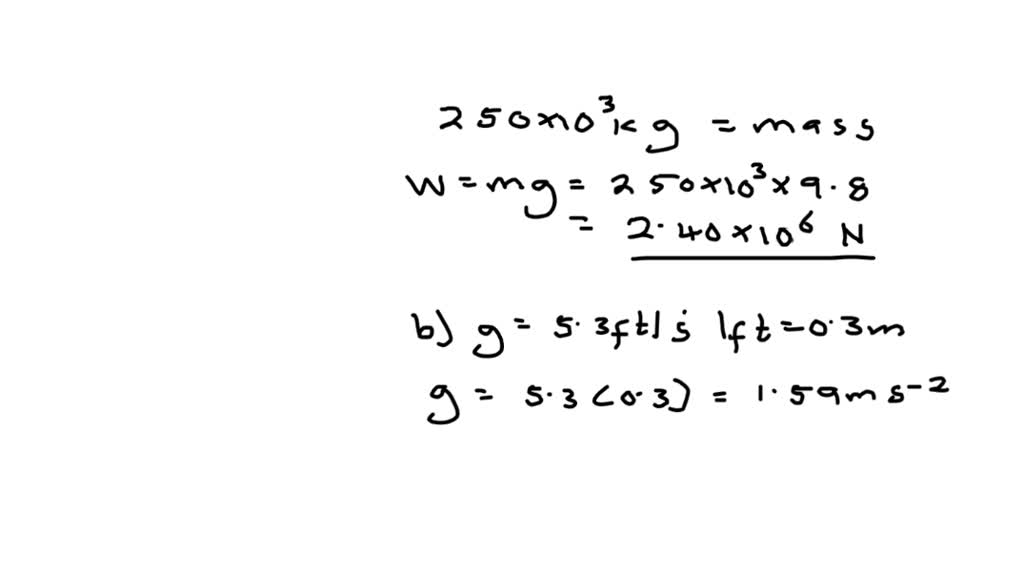 250×10³kg = mass
W = mg = 250×10³×9.8
= 2.40×10⁶ N
b) g = 5.3ft/s 1ft=0.3m
g = 5.3(0.3) = 1.59ms⁻²